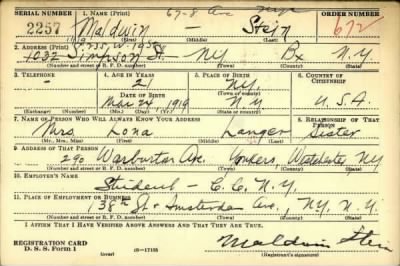 SERIAL NUMBER 1. NAME (Print) ORDER NUMBER
2257 Maldwin — Stein 672
(First) (Middle) (Last)
2. ADDRESS (Print)
1032 Simpson St. — NY Bx N.Y.
(Number and street or R. F. D. number) (Town) (County) (State)
3. TELEPHONE 4. AGE IN YEARS 5. PLACE OF BIRTH 6. COUNTRY OF CITIZENSHIP
— 21 N.Y.
(Town or county)
DATE OF BIRTH
Mar 24 1919 N.Y. U.S.A.
(Exchange) (Number) (Mo.) (Day) (Yr.) (State or country)
7. NAME OF PERSON WHO WILL ALWAYS KNOW YOUR ADDRESS 8. RELATIONSHIP OF THAT PERSON
Mrs. Lona Langer Sister
(Mr., Mrs., Miss) (First) (Middle) (Last)
9. ADDRESS OF THAT PERSON
290 Warburton Ave. Yonkers, Westchester NY
(Number and street or R. F. D. number) (Town) (County) (State)
10. EMPLOYER'S NAME
Student — C.C.N.Y.
11. PLACE OF EMPLOYMENT OR BUSINESS
138th St & Amsterdam Ave. N.Y. N.Y.
(Number and street or R. F. D. number) (Town) (County) (State)
I AFFIRM THAT I HAVE VERIFIED ABOVE ANSWERS AND THAT THEY ARE TRUE.
REGISTRATION CARD
D. S. S. Form 1 (over) 16—17105 Maldwin Stein
(Registrant's signature)